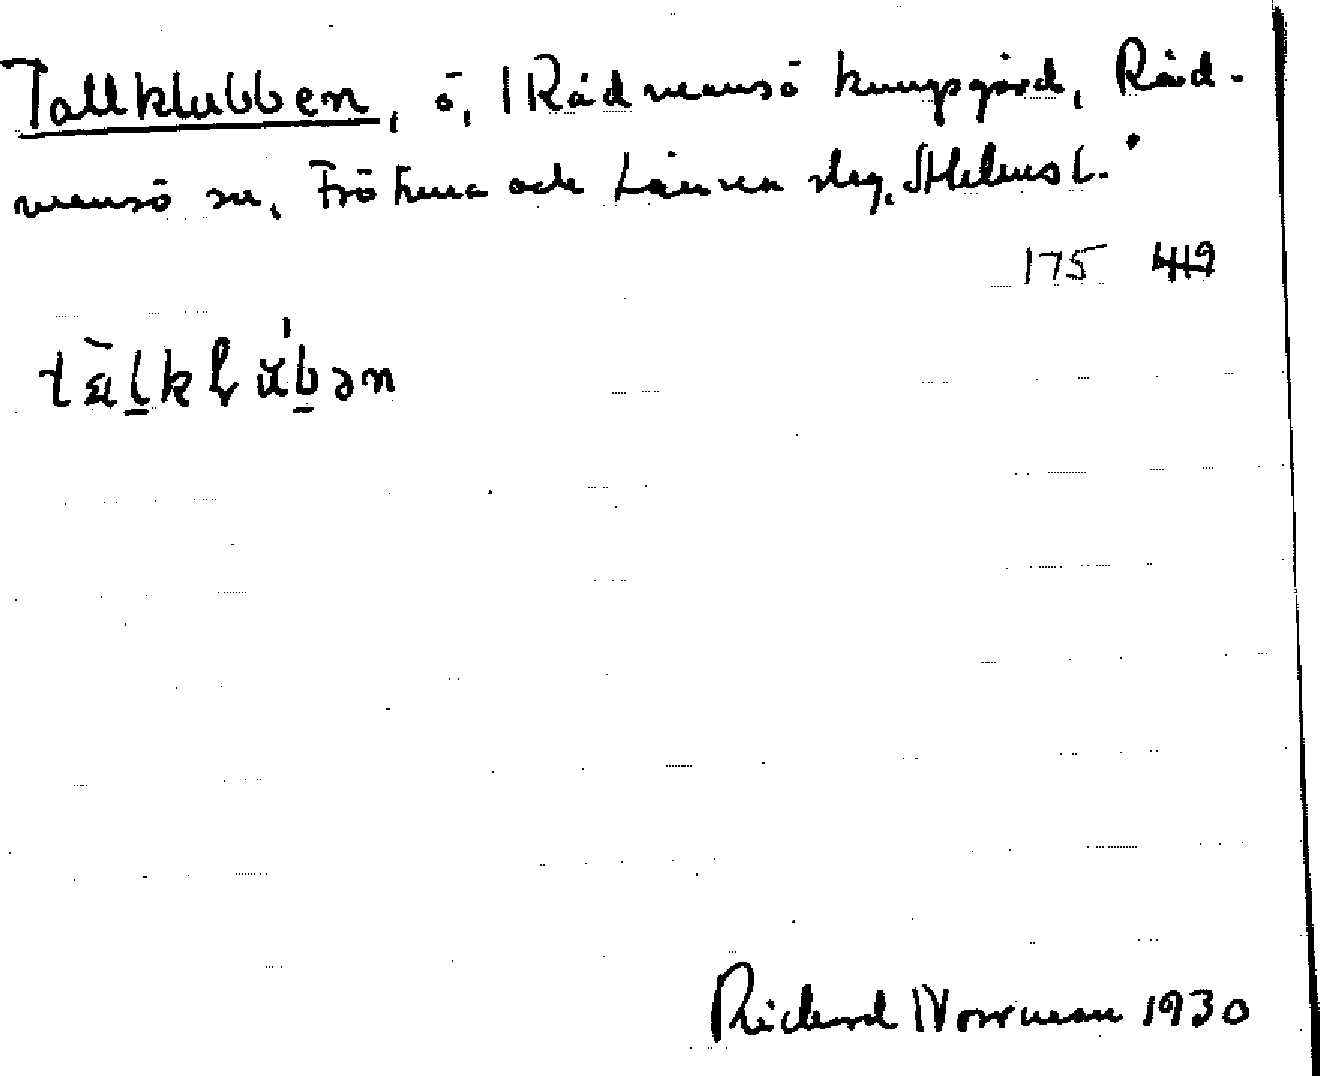 Tallklubben, ö, Rådmansö kungsgård, Råd-
mansö sn, Frötuna och Länna slg, Sthlms l.
175 419
Rickard Norrman 1930